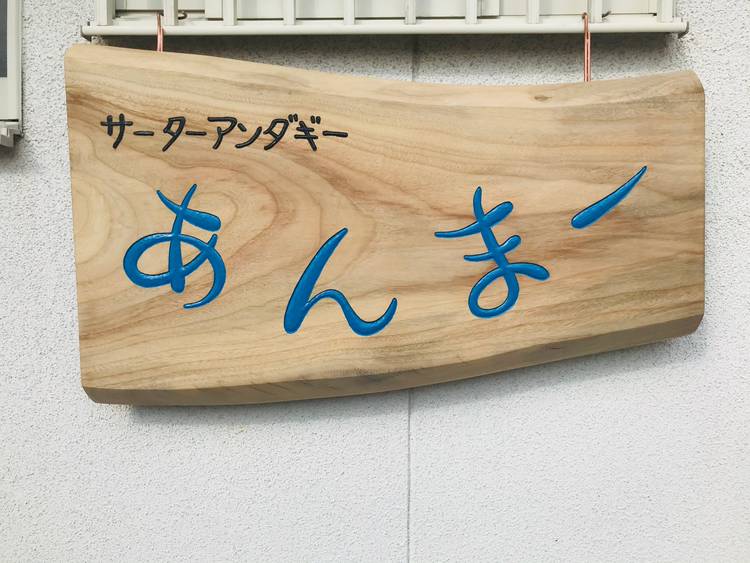 サーターアンダギー
あんまー